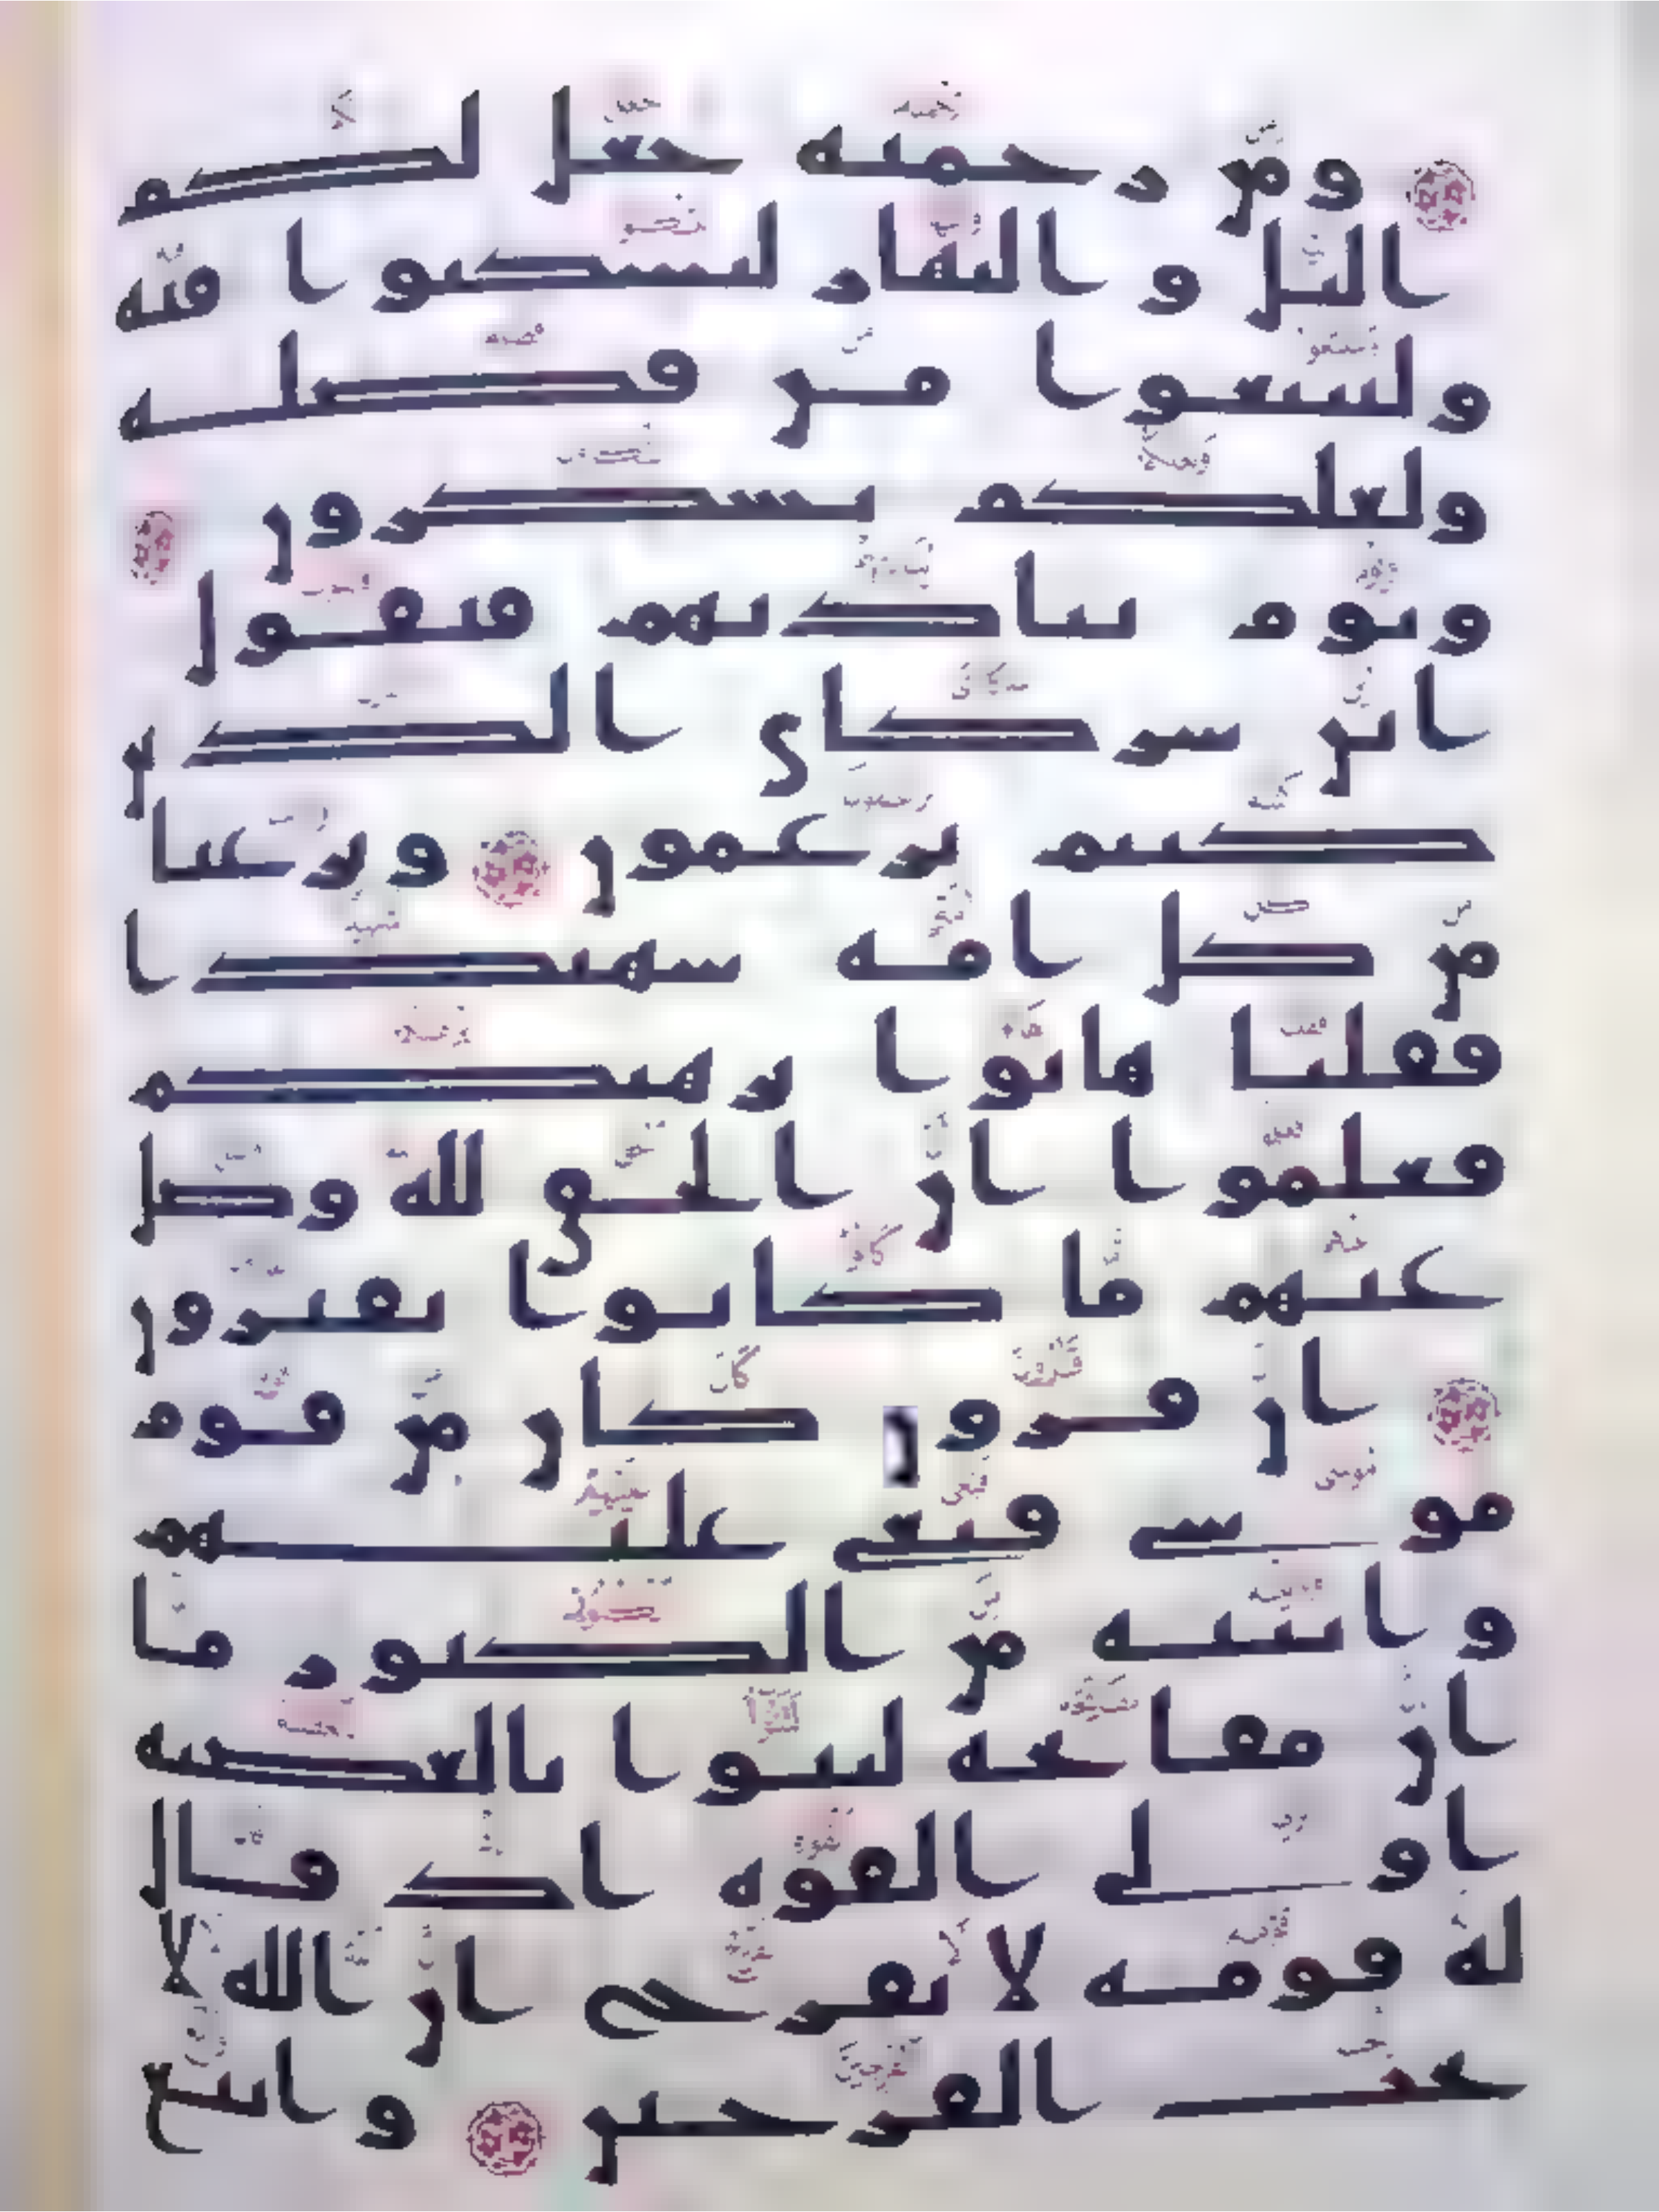 ومن رحمته جعل لكم
اليل والنهار لتسكنوا فيه
ولتبتغوا من فضله
ولعلكم تشكرون
ويوم يناديهم فيقول
اين شركاي الذين
كنتم تزعمون ونزعنا
من كل امة شهيدا
فقلنا هاتوا برهنكم
فعلموا ان الحق لله وضل
عنهم ما كانوا يفترون
ان قرون كان من قوم
موسى فبغى عليهم
واتينه من الكنوز ما
ان مفاتحه لتنوا بالعصبة
اولي القوة اذ قال
له قومه لا تفرح ان الله لا
يحب الفرحين وابتغ